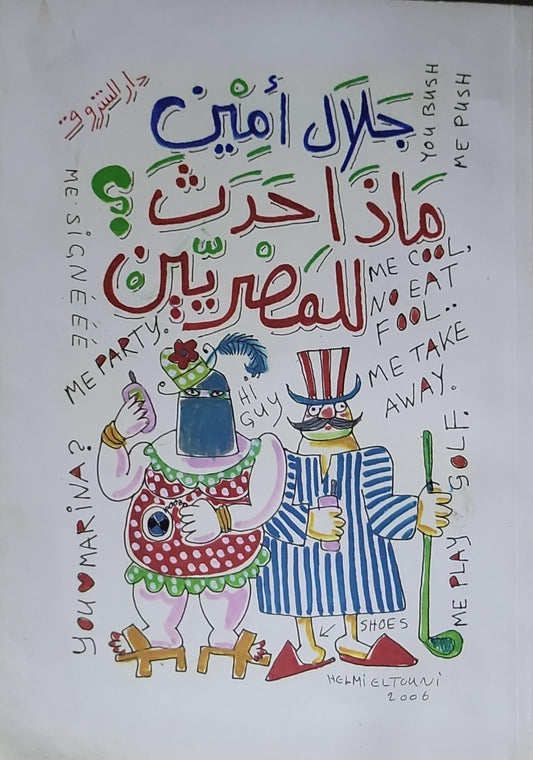 دار الشروق
جَلَال أَمِيْن
مَاذَا حَدَثَ
للمَصْريّين؟
YOU BUSH
ME PUSH
ME SIGNÉÉÉ
ME COOL,
NO EAT
FOOL..
ME TAKE
AWAY.
ME PARTY.
HI
GUY
YOU ♥ MARINA?
ME PLAY GOLF.
SHOES
HELMI ELTOUNI
2006